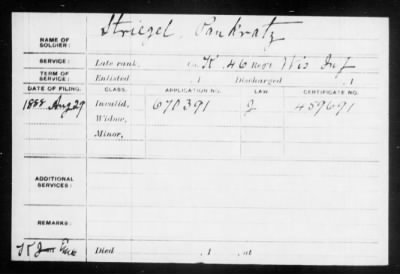 NAME OF SOLDIER: Striegel, Pankratz
SERVICE: Late rank, Co. K, 46 Reg't Wis Inf
TERM OF SERVICE: Enlisted , 1 Discharged , 1
DATE OF FILING. CLASS. APPLICATION NO. LAW. CERTIFICATE NO.
1888 Aug 29 Invalid, 670391 459691
Widow,
Minor,
ADDITIONAL SERVICES:
REMARKS:
Died , 1 , at